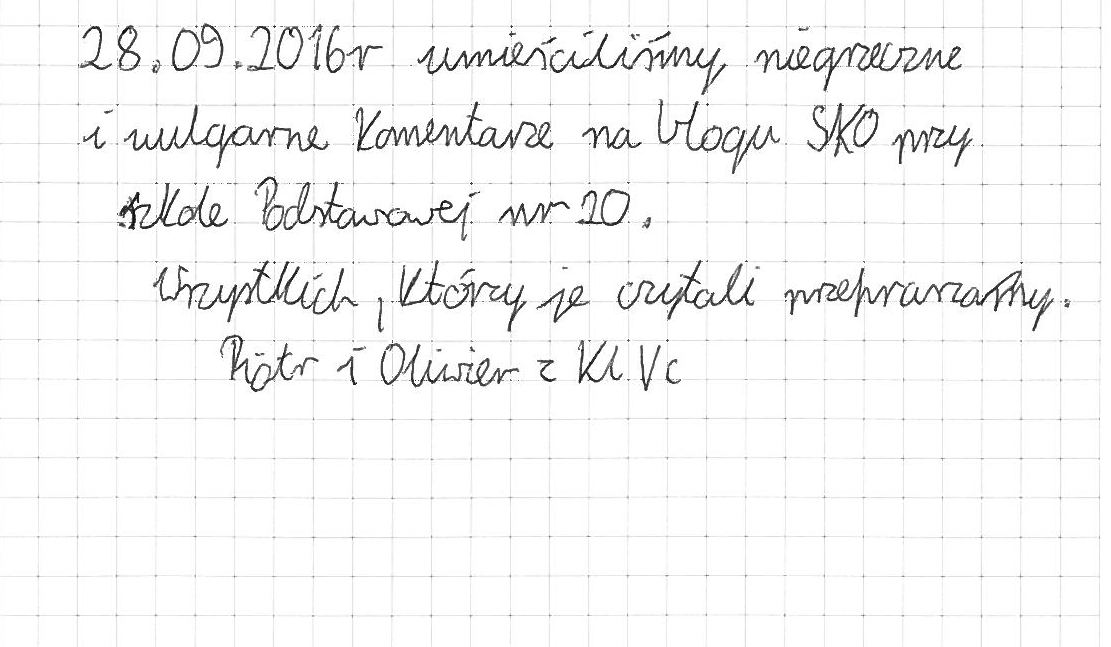 28.09.2016r umieściliśmy niegrzeczne
i wulgarne komentarze na blogu SKO przy
szkole Podstawowej nr 20.
Wszystkich, którzy je czytali przepraszamy.
Piotr i Oliwier z kl. Vc